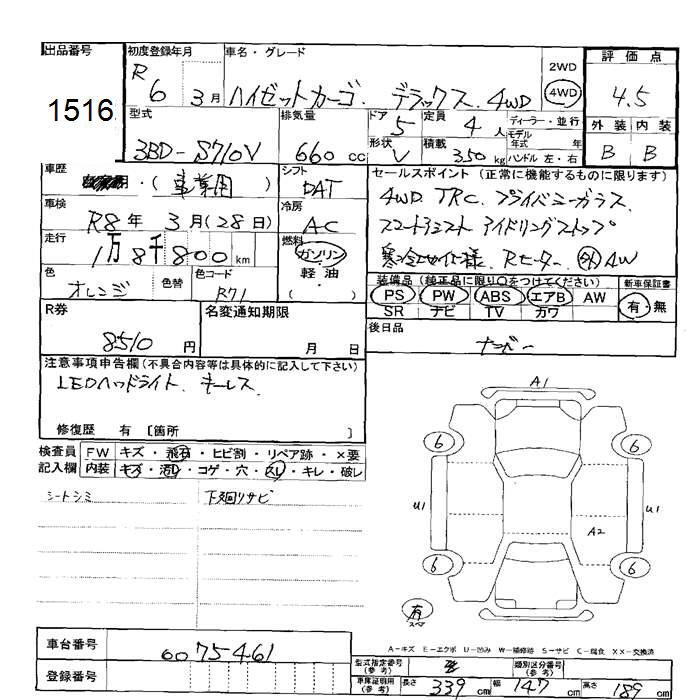 出品番号 初度登録年月 車名・グレード 2WD 4WD 評価点
1516 R6 3月 ハイゼットカーゴ デラックス 4WD 4.5
型式 排気量 ドア 定員 ディーラー・並行 外装 内装
3BD-S710V 660cc 5 4人 モデル年式 年式 B B
形状 積載 ハンドル 左・右
V 350kg
車歴 シフト セールスポイント(正常に機能するものに限ります)
・(事業用) DAT 4WD TRC. プライバシーガラス.
車検 冷房 スマートアシスト アイドリングストップ
R8年 3月(28日) AC 寒冷地仕様 Rヒーター 外AW
走行 燃料
1万8千800km ガソリン・軽油・( )
色 色替 色コード 装備品(純正品に限り○をつけてください) 新車保証書
オレンジ R71 PS PW ABS エアB AW 有・無
SR ナビ TV カワ
R券 名変通知期限 後日品
8510円 月 日 ナンバー
注意事項申告欄(不具合内容等は具体的に記入して下さい)
LEDヘッドライト. キーレス
修復歴 有 [箇所 ]
検査員 FW キズ・飛石・ヒビ割・リペア跡・×要
記入欄 内装 キズ・汚れ・コゲ・穴・スレ・キレ・破レ
シートシミ 下廻りサビ
A1
6 6
U1 U1
A2
6 6
有
スペア
A-キズ E-エクボ U-凹み W-補修跡 S-サビ C-腐食 XX-交換済
車台番号 0075461
登録番号
型式指定番号(参考) 類別区分番号(参考)
車庫証明用(参考) 長さ 339cm 幅 147cm 高さ 189cm